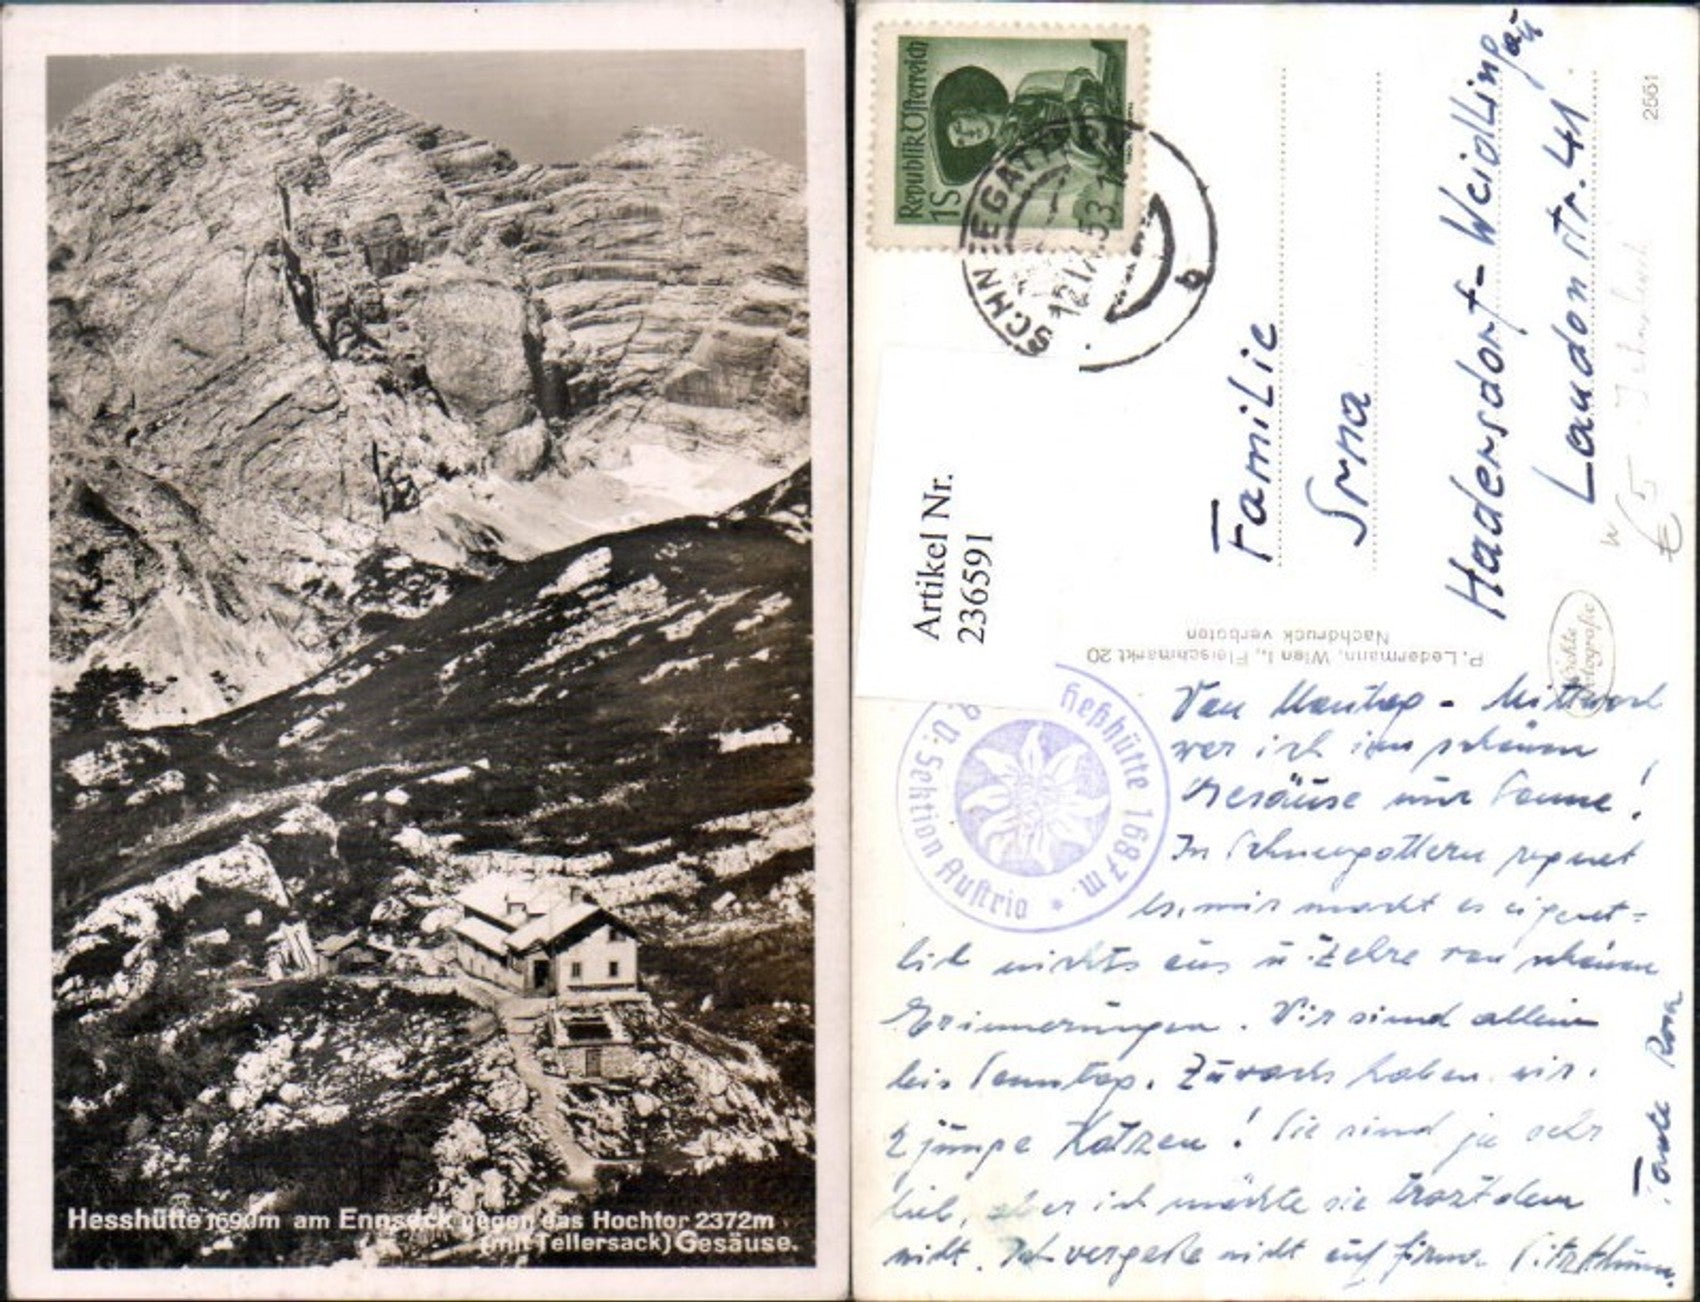 Hesshütte 1690m am Ennseck gegen das Hochtor 2372m
(mit Tellersack) Gesäuse.
Republik Österreich
1S
SCHNEEGATTERN
b
Artikel Nr.
236591
Familie
Srna
Hadersdorf-Weidlingau
Laudonstr. 41.
2561
€ 5
P. Ledermann, Wien I., Fleischmarkt 20
Nachdruck verboten
Heßhütte 1687 m. * Sektion Austria
Von Montag - Mittwoch
war ich im schönen
Gesäuse nur Sonne!
In Schneegattern regnet
es, mir macht es eigent=
lich nichts aus u. zehre von schönen
Erinnerungen. Wir sind allein
bis Sonntag. Zuwachs haben wir.
2 junge Katzen! Sie sind ja sehr
lieb, aber ich möchte sie trotzdem
nicht. Ich vergesse nicht auf
Tante Rosa